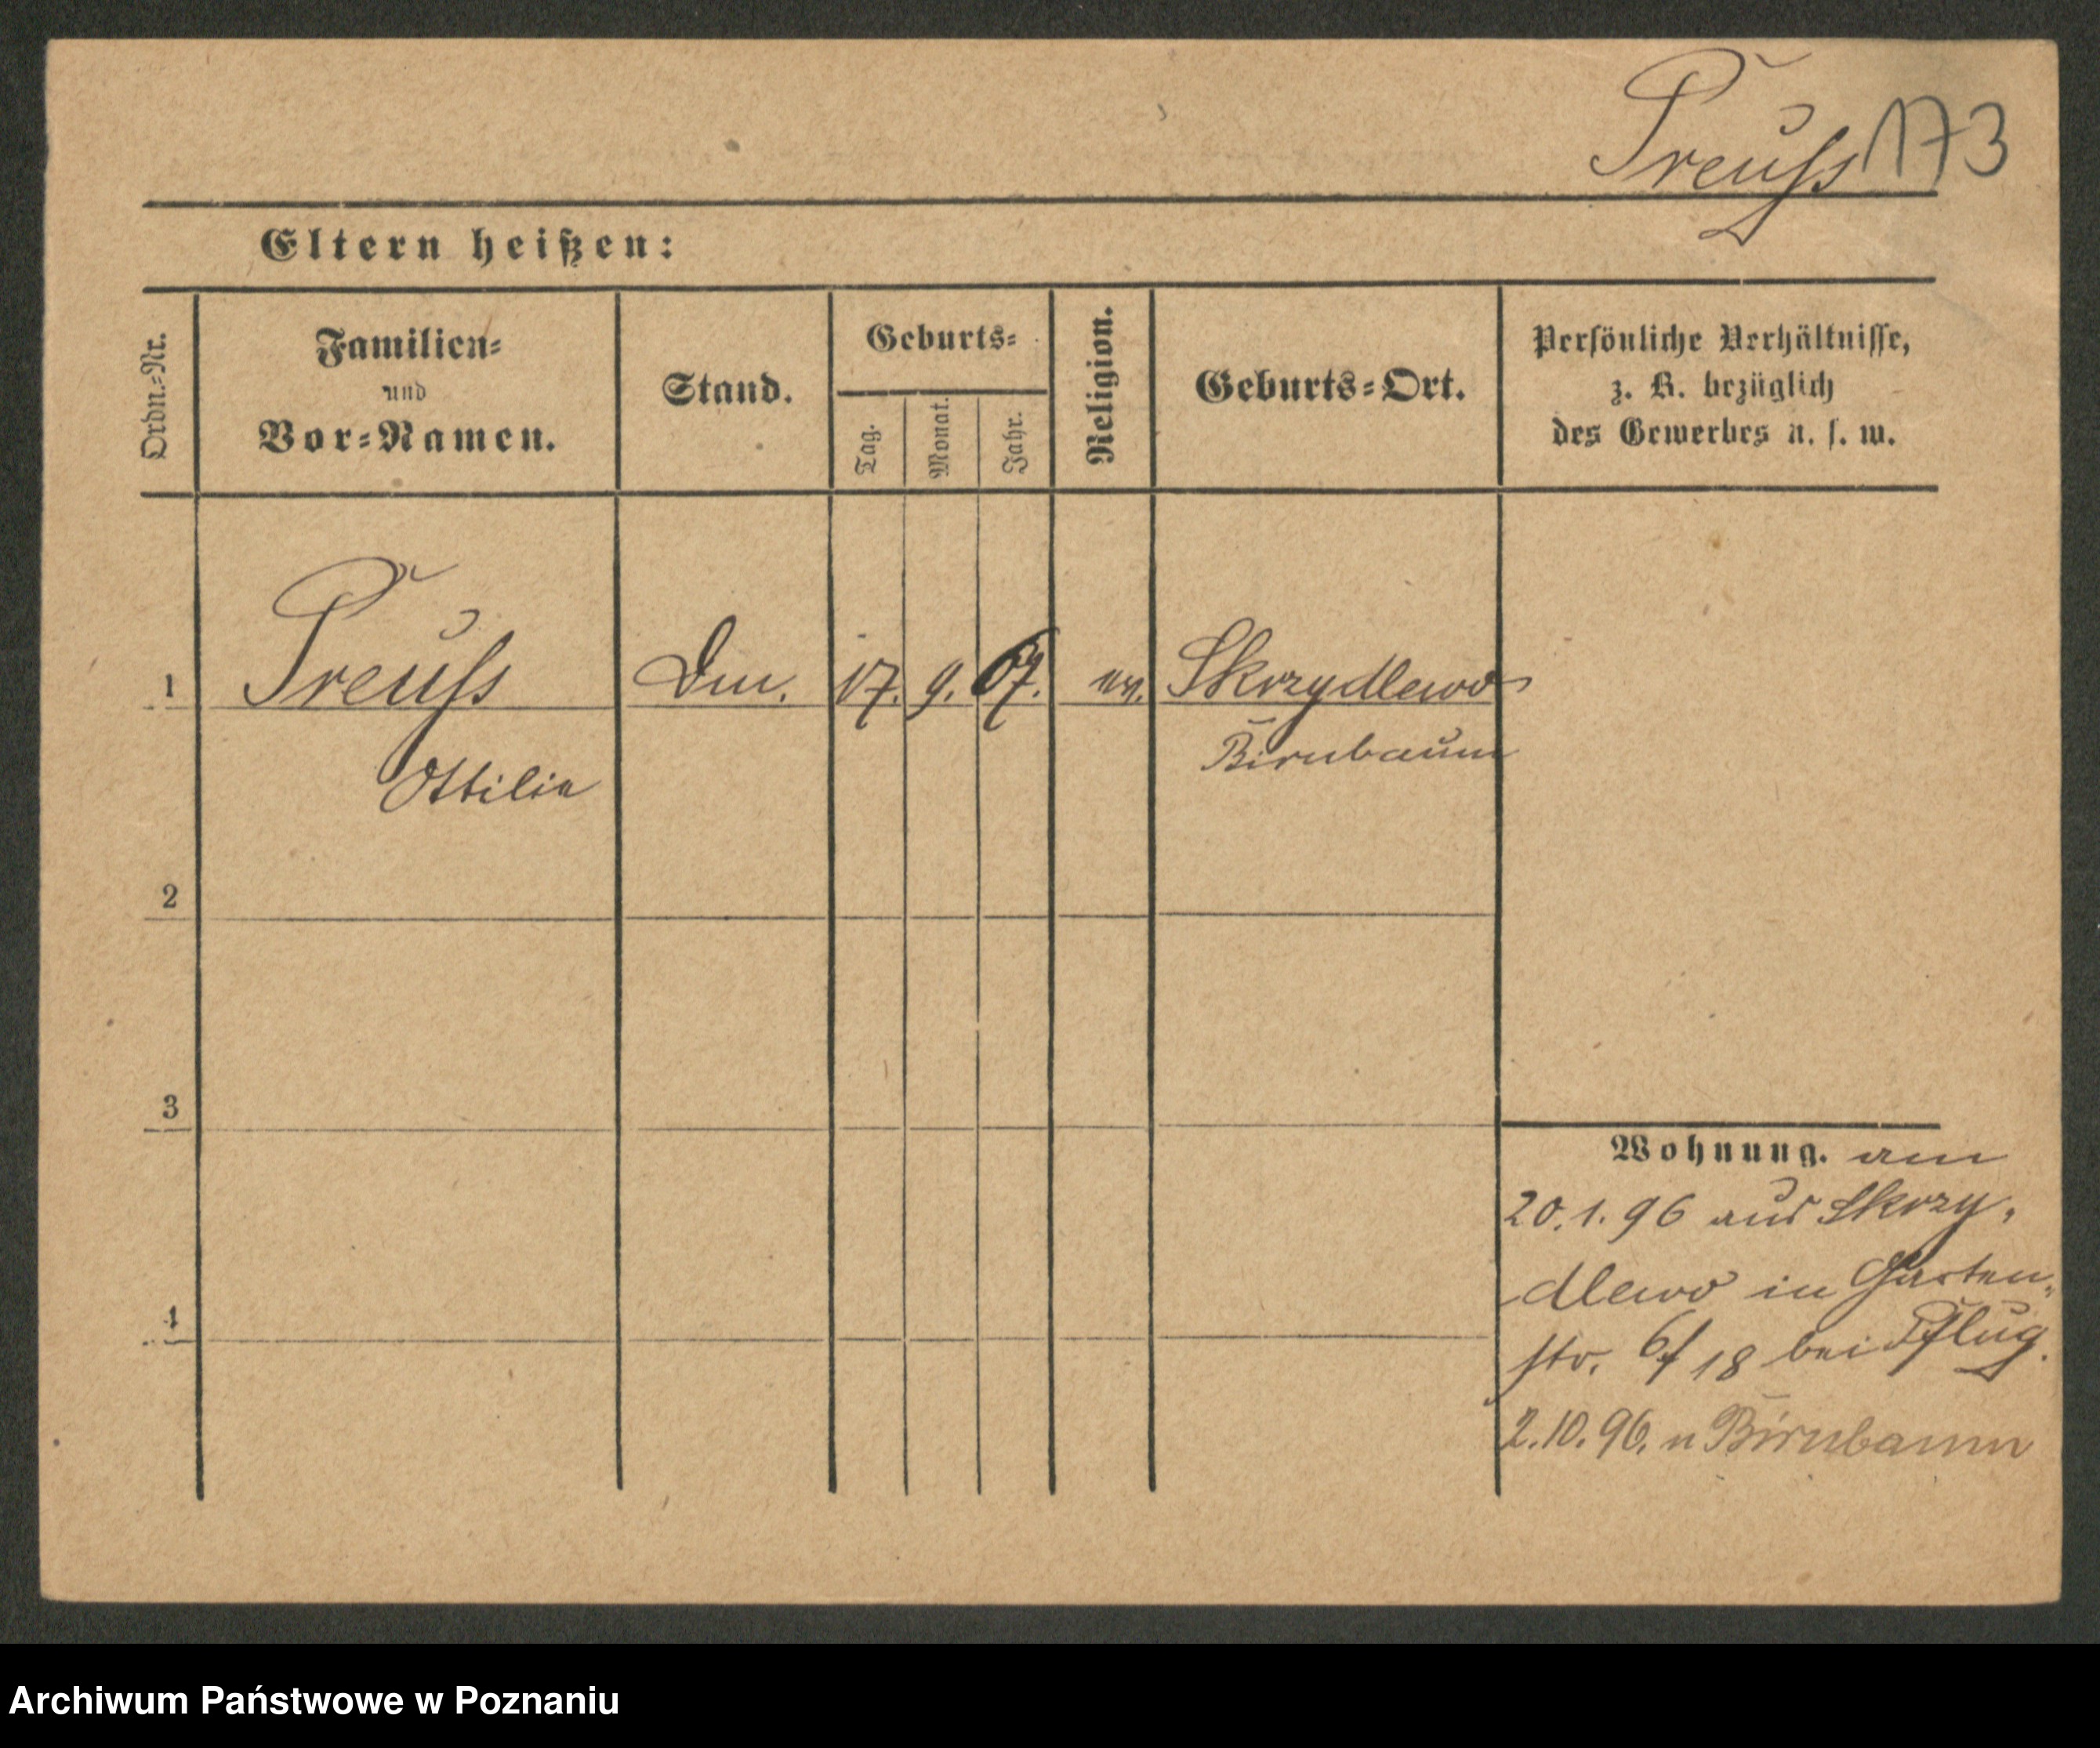 Preuſs 173
Eltern heißen:
Ordn.=Nr.
Familien=
und
Vor=Namen.
Stand.
Geburts=
Tag.
Monat.
Jahr.
Religion.
Geburts=Ort.
Persönliche Verhältnisse,
z. B. bezüglich
des Gewerbes u. s. w.
1 Preuſs 17. 9. 67. ev. Skrzydlewo
Ottilie Birnbaum
2
3
4
Wohnung. am
20.1.96 aus Skrzy-
dlewo in Garten-
str. 18 bei Pflug.
2.10.96. n Birnbaum
Archiwum Państwowe w Poznaniu